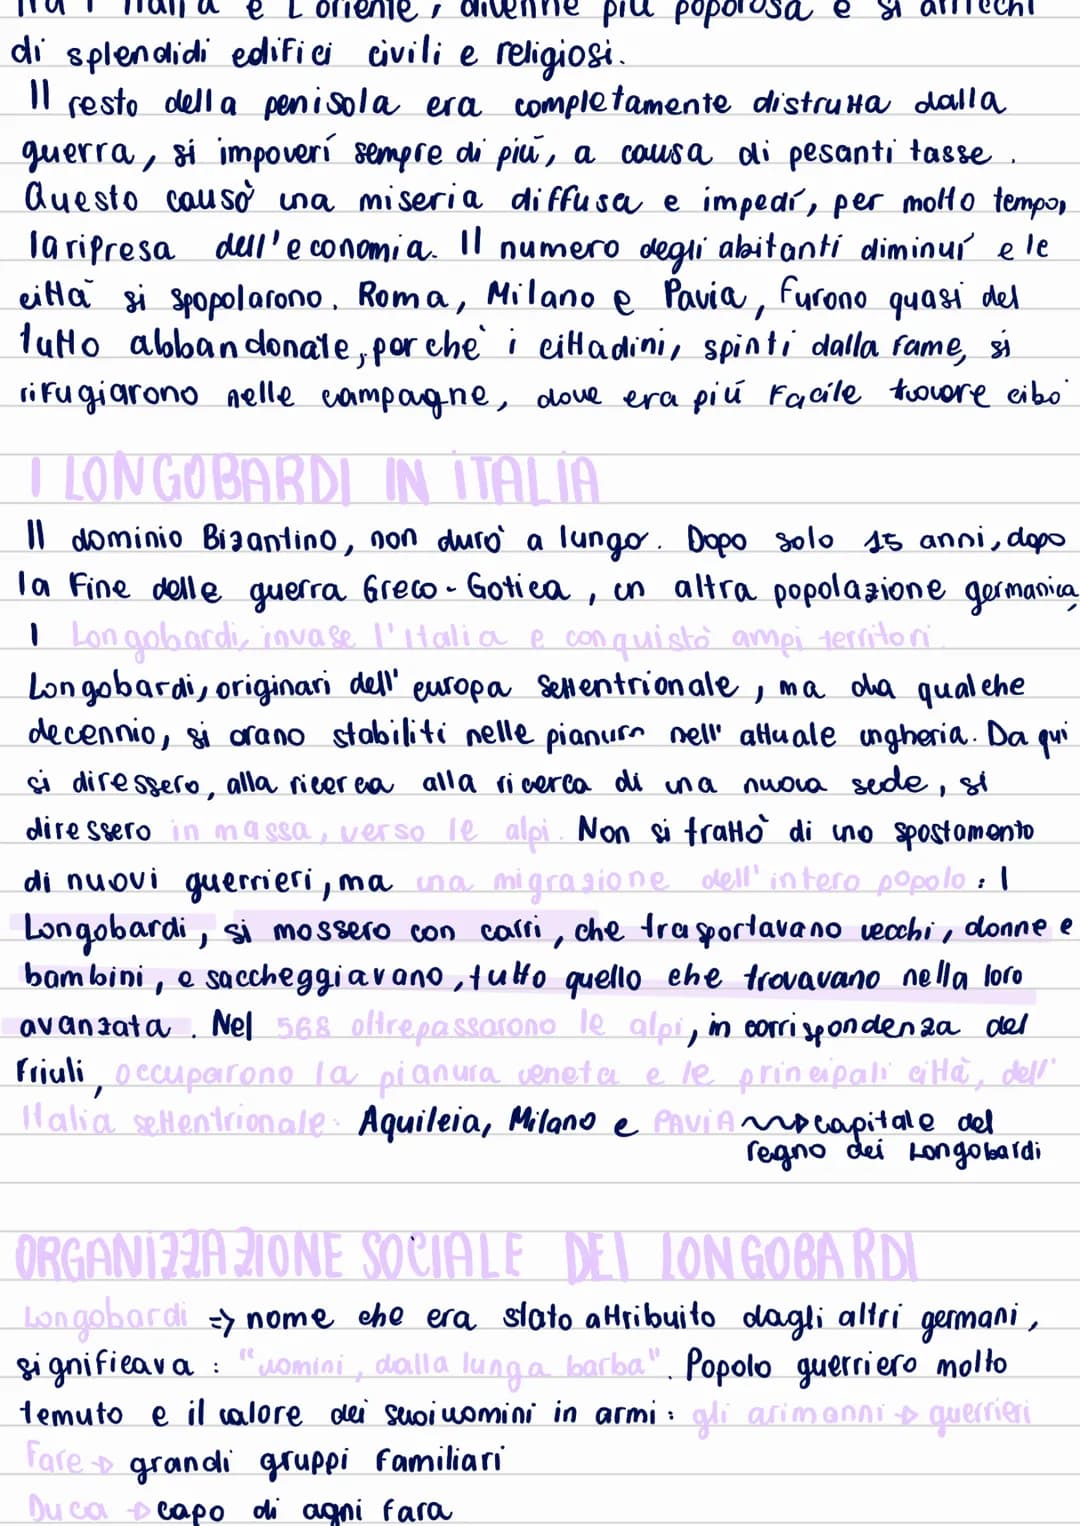 tra l'Italia e l'oriente, divenne più poporosa e si arricchì
di splendidi edifici civili e religiosi.
Il resto della penisola era completamente distrutta dalla
guerra, si impoverí sempre di più, a causa di pesanti tasse.
Questo causò una miseria diffusa e impedí, per molto tempo,
la ripresa dell'economia. Il numero degli abitanti diminuí e le
città si spopolarono. Roma, Milano e Pavia, furono quasi del
tutto abbandonate, perchè i cittadini, spinti dalla fame, si
rifugiarono nelle campagne, dove era piú facile trovare cibo
I LONGOBARDI IN ITALIA
Il dominio Bizantino, non durò a lungo. Dopo solo 15 anni, dopo
la fine delle guerra Greco-Gotica, un altra popolazione germanica,
I Longobardi, invase l'Italia e conquistò ampi territori.
Longobardi, originari dell' europa settentrionale, ma da qualche
decennio, si erano stabiliti nelle pianure nell' attuale ungheria. Da qui
si diressero, alla ricerca alla ricerca di una nuova sede, si
diressero in massa, verso le alpi. Non si trattò di uno spostamento
di nuovi guerrieri, ma una migrazione dell'intero popolo: I
Longobardi, si mossero con carri, che trasportavano vecchi, donne e
bambini, e saccheggiavano, tutto quello che trovavano nella loro
avanzata. Nel 568 oltrepassarono le alpi, in corrispondenza del
Friuli, occuparono la pianura veneta e le principali città, dell'
Italia settentrionale: Aquileia, Milano e PAVIA → capitale del
regno dei Longobardi
ORGANIZZAZIONE SOCIALE DEI LONGOBARDI
Longobardi => nome che era stato attribuito dagli altri germani,
significava: "uomini, dalla lunga barba". Popolo guerriero molto
temuto e il valore dei suoi uomini in armi: gli arimanni → guerrieri
Fare → grandi gruppi familiari
Duca → capo di agni fara